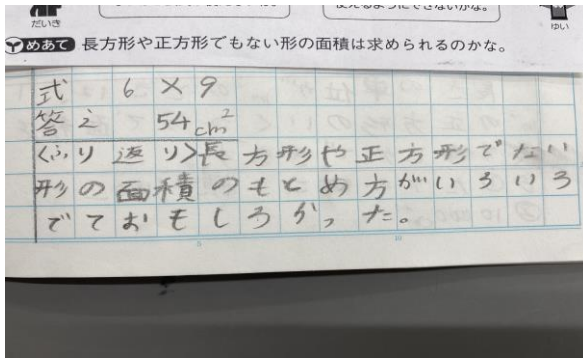 だいき
使えるようにできないかな。
ゆい
めあて 長方形や正方形でもない形の面積は求められるのかな。
式 6×9
答え 54cm²
<ふり返り>長方形や正方形でない
形の面積のもとめ方がいろいろ
でておもしろかった。
5 10